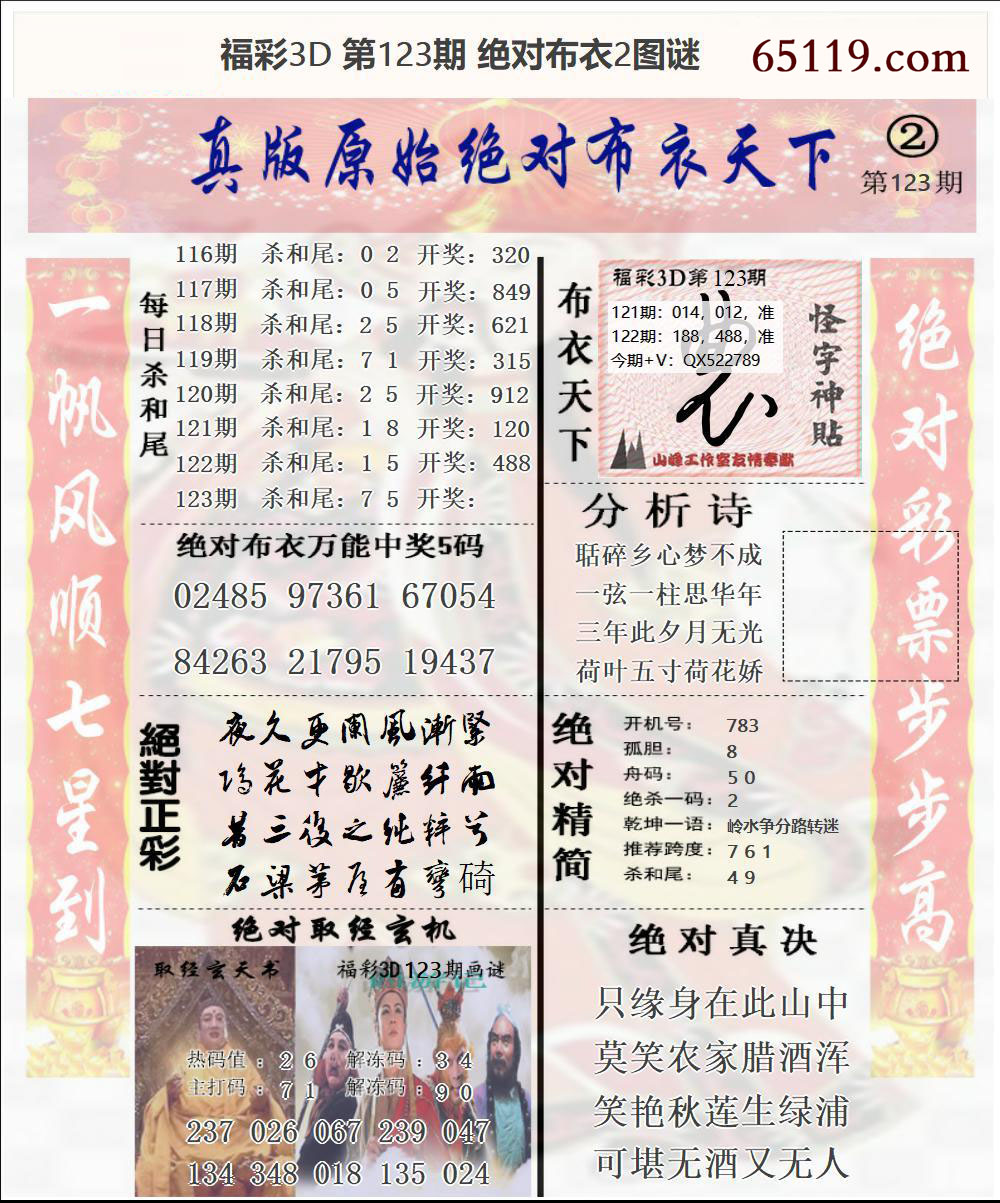 福彩3D 第123期 绝对布衣2图谜
65119.com
真版原始绝对布衣天下
②
第123期
一帆风顺七星到
每日杀和尾
116期 杀和尾：0 2 开奖：320
117期 杀和尾：0 5 开奖：849
118期 杀和尾：2 5 开奖：621
119期 杀和尾：7 1 开奖：315
120期 杀和尾：2 5 开奖：912
121期 杀和尾：1 8 开奖：120
122期 杀和尾：1 5 开奖：488
123期 杀和尾：7 5 开奖：
绝对布衣万能中奖5码
02485 97361 67054
84263 21795 19437
絕對正彩
夜久更阑風漸緊
昔三後之纯粹兮
石梁茅屋有彎碕
绝对取经玄机
取经玄天书
福彩3D123期画谜
热码值：2 6 解冻码：3 4
主打码：7 1 解冻码：9 0
237 026 067 239 047
134 348 018 135 024
布衣天下
福彩3D第123期
121期：014，012，准
122期：188，488，准
今期+V：QX522789
怪字神貼
山峰工作室友情奉献
分析诗
聒碎乡心梦不成
一弦一柱思华年
三年此夕月无光
荷叶五寸荷花娇
绝对精简
开机号：783
孤胆：8
舟码：5 0
绝杀一码：2
乾坤一语：岭水争分路转迷
推荐跨度：7 6 1
杀和尾：4 9
绝对真决
只缘身在此山中
莫笑农家腊酒浑
笑艳秋莲生绿浦
可堪无酒又无人
绝对彩票步步高